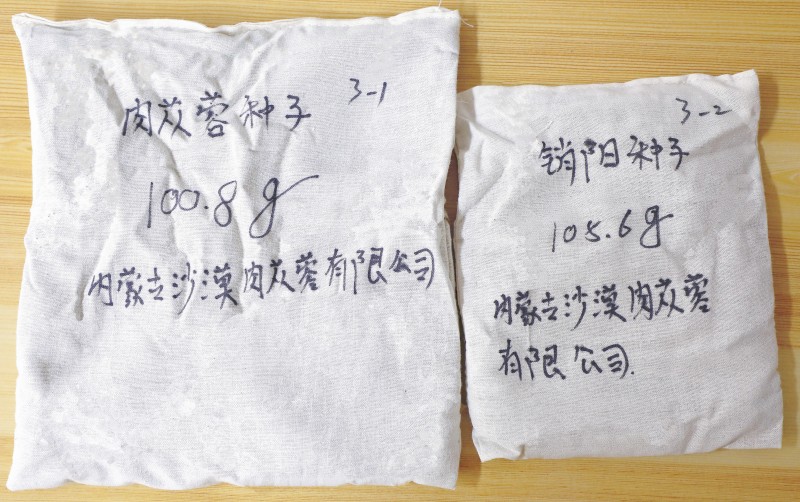 3-1
肉苁蓉种子
100.8g
内蒙古沙漠肉苁蓉有限公司
3-2
销阳种子
105.6g
内蒙古沙漠肉苁蓉
有限公司.